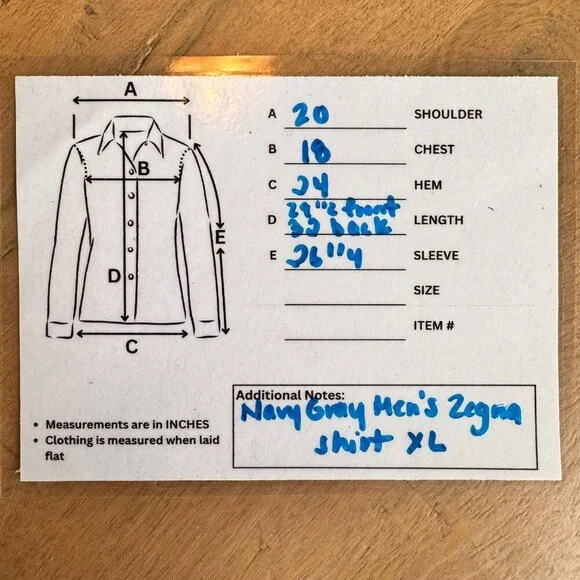 A
B
E
D
C
A 20 SHOULDER
B 18 CHEST
C 24 HEM
D 29 1/2 front LENGTH
32 back
E 26 1/4 SLEEVE
SIZE
ITEM #
• Measurements are in INCHES
• Clothing is measured when laid
flat
Additional Notes:
Navy Gray Men's Zegna
shirt XL